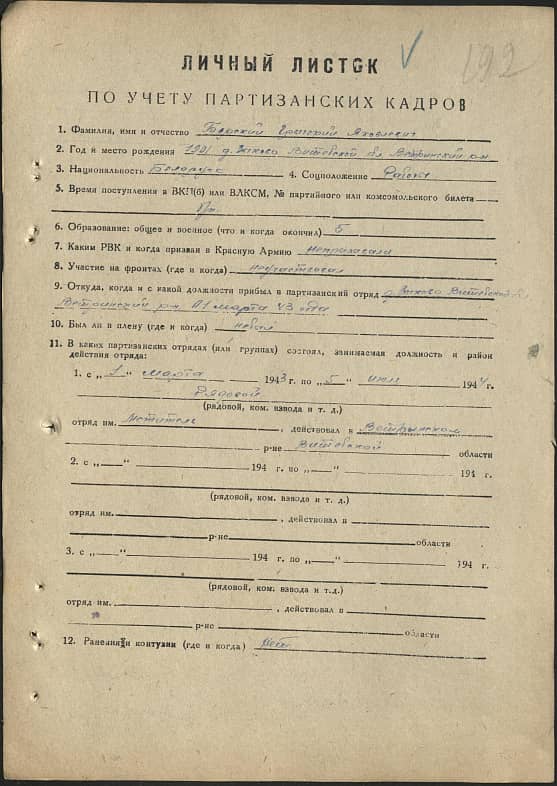 192
ЛИЧНЫЙ ЛИСТОК
ПО УЧЕТУ ПАРТИЗАНСКИХ КАДРОВ
1. Фамилия, имя и отчество Яковлевич
2. Год и место рождения 1901 д. Витебской обл Ветринский р-н
3. Национальность Белорус 4. Соцположение
5. Время поступления в ВКП(б) или ВЛКСМ, № партийного или комсомольского билета
6. Образование: общее и военное (что и когда окончил) 5
7. Каким РВК и когда призван в Красную Армию
8. Участие на фронтах (где и когда) неучаствовал
9. Откуда, когда и с какой должности прибыл в партизанский отряд д. Витебской
Ветринский р-н марта 43 года
10. Был ли в плену (где и когда) небыл
11. В каких партизанских отрядах (или группах) состоял, занимаемая должность и район
действия отряда:
1. с „1" марта 1943 г. по „5" июл 1944 г.
Рядовой
(рядовой, ком. взвода и т. д.)
отряд им. Мститель, действовал в Ветрынском
р-не Витебской области
2. с „—" 194 г. по „—" 194 г.
(рядовой, ком. взвода и т. д.)
отряд им. , действовал в
р-не области
3. с „—" 194 г. по „—" 194 г.
(рядовой, ком. взвода и т.д.)
отряд им. , действовал в
р-не области
12. Ранения и контузии (где и когда)